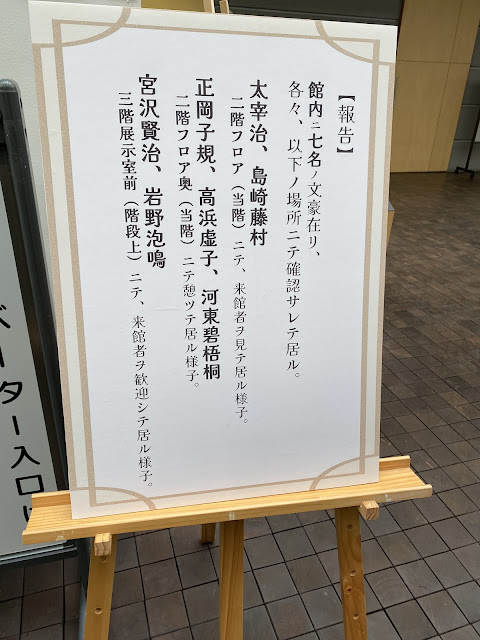 【報告】
館内ニ七名ノ文豪在リ、
各々、以下ノ場所ニテ確認サレテ居ル。
太宰治、島崎藤村
二階フロア（当階）ニテ、来館者ヲ見テ居ル様子。
正岡子規、高浜虚子、河東碧梧桐
二階フロア奥（当階）ニテ憩ツテ居ル様子。
宮沢賢治、岩野泡鳴
三階展示室前（階段上）ニテ、来館者ヲ歓迎シテ居ル様子。
ベーター入口